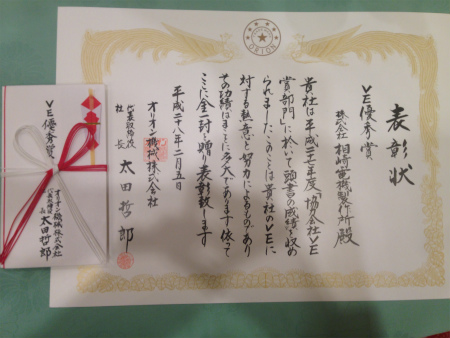 ORION
表彰状
VE優秀賞
株式会社 相崎電機製作所 殿
貴社は平成二十七年度 協力会社VE
賞部門に於いて頭書の成績を収め
られました このことは貴社のVEに
対する熱意と努力によるものであり
その功績はまことに多大であります 依って
ここに金一封を贈り表彰致します
平成二十八年二月五日
オリオン機械株式会社
代表取締役
社長 太田哲郎
VE優秀賞
オリオン機械株式会社
太田哲郎